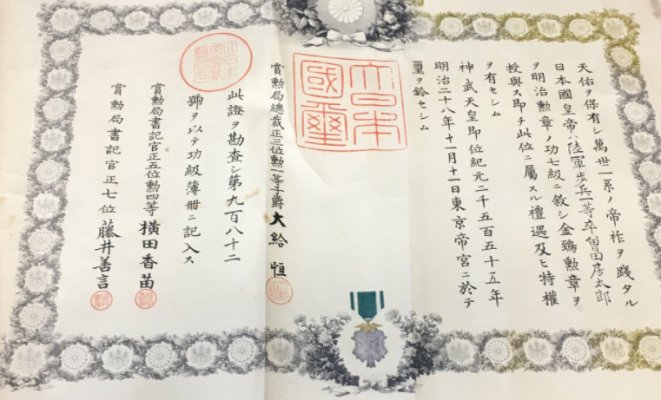 天佑ヲ保有シ萬世一系ノ帝祚ヲ踐タル
日本國皇帝ハ陸軍歩兵一等卒曽田彦太郎
ヲ明治勲章ノ功七級ニ敘シ金鵄勲章ヲ
授與ス即チ此位ニ屬スル禮遇及ヒ特權
ヲ有セシム
神武天皇即位紀元二千五百五十五年
明治二十八年十一月十一日東京帝宮ニ於テ
璽ヲ鈐セシム
大日本
國璽
賞勲局總裁正三位勲一等子爵大給恒
此證ヲ勘査シ第九百八十二
號ヲ以テ功級簿册ニ記入ス
賞勲局書記官正五位勲四等横田香苗
賞勲局書記官正七位藤井善言